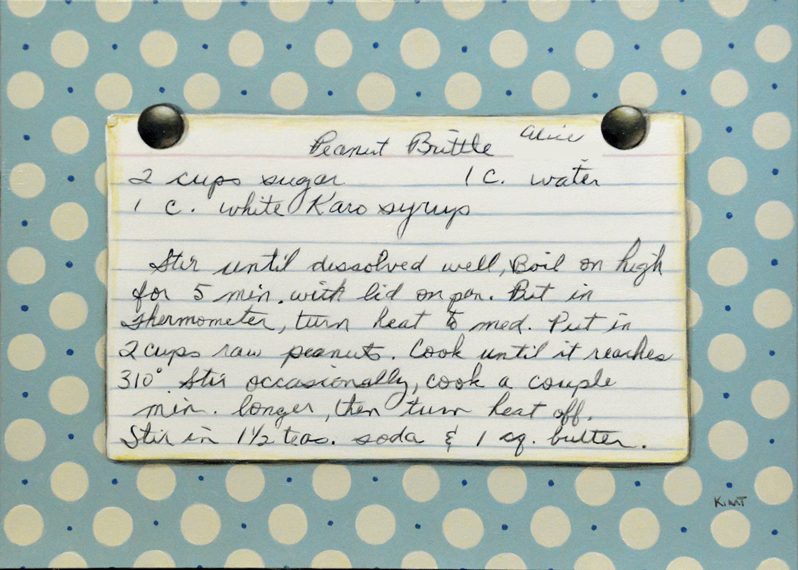 Peanut Brittle Alice
2 cups sugar 1 c. water
1 c. white Karo syrup
Stir until dissolved well, Boil on high
for 5 min. with lid on pan. Put in
thermometer, turn heat to med. Put in
2 cups raw peanuts. Cook until it reaches
310°. Stir occasionally, cook a couple
min. longer, then turn heat off.
Stir in 1 1/2 teas. soda & 1 sq. butter.
KIMT